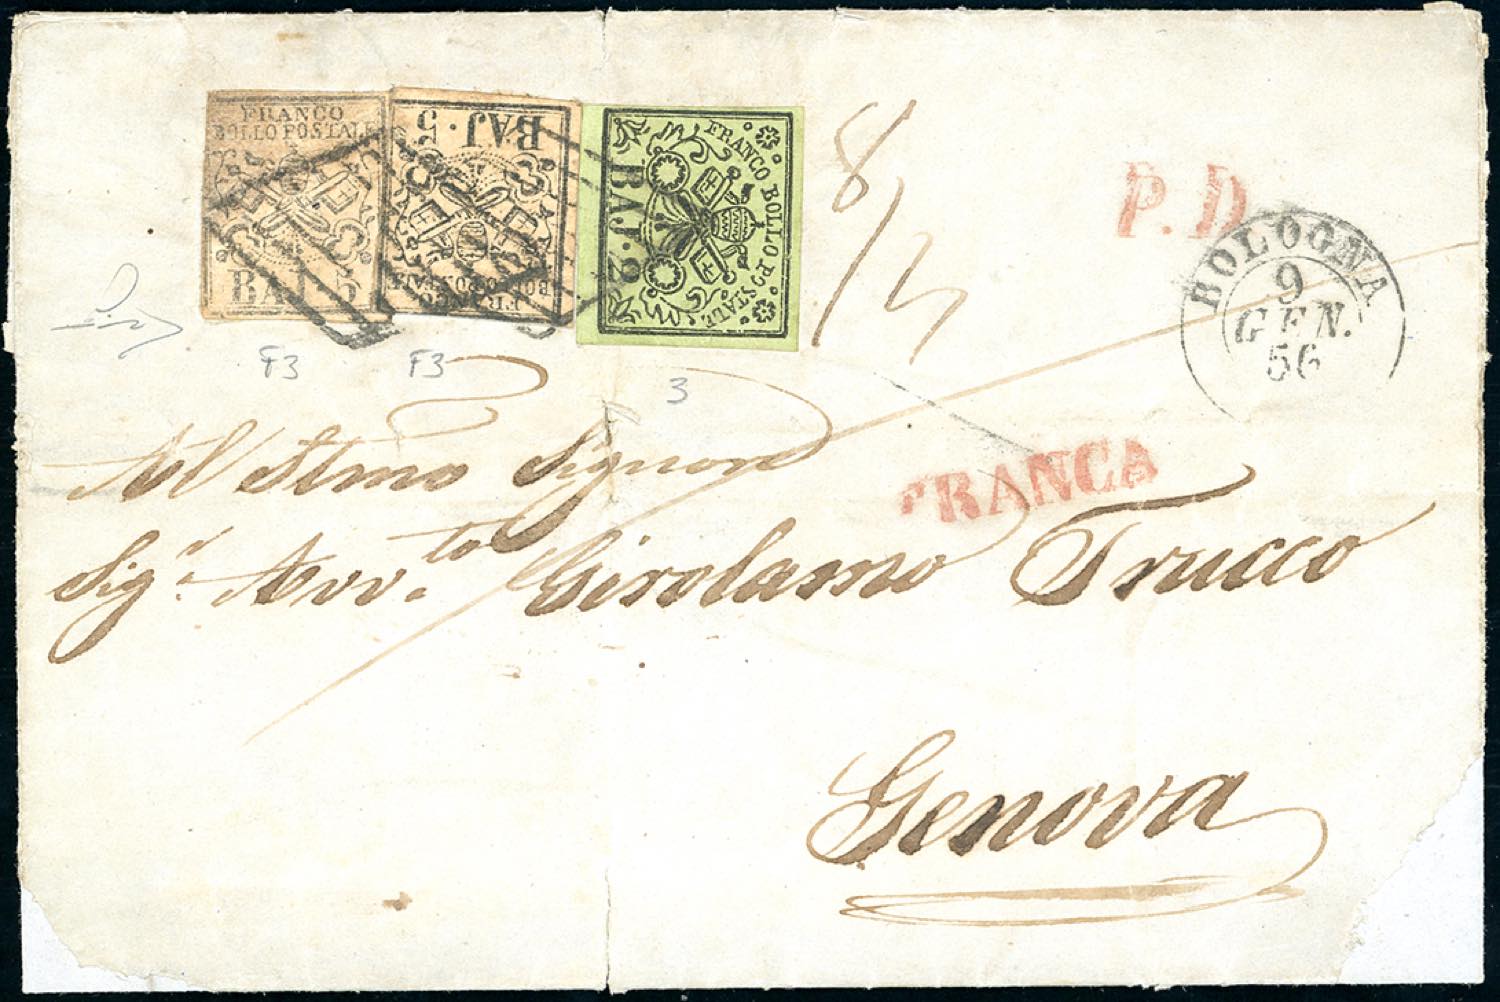 FRANCO
BOLLO POSTALE
BAJ. 5
BAJ. 5
FRANCO
BOLLO POSTALE
FRANCO BOLLO POSTALE
BAJ. 2
8/
P.D
BOLOGNA
9
GEN.
56
F3
F3
3
FRANCA
Al Stmo Signor
Sigr. Avv.to Girolamo Trucco
Genova